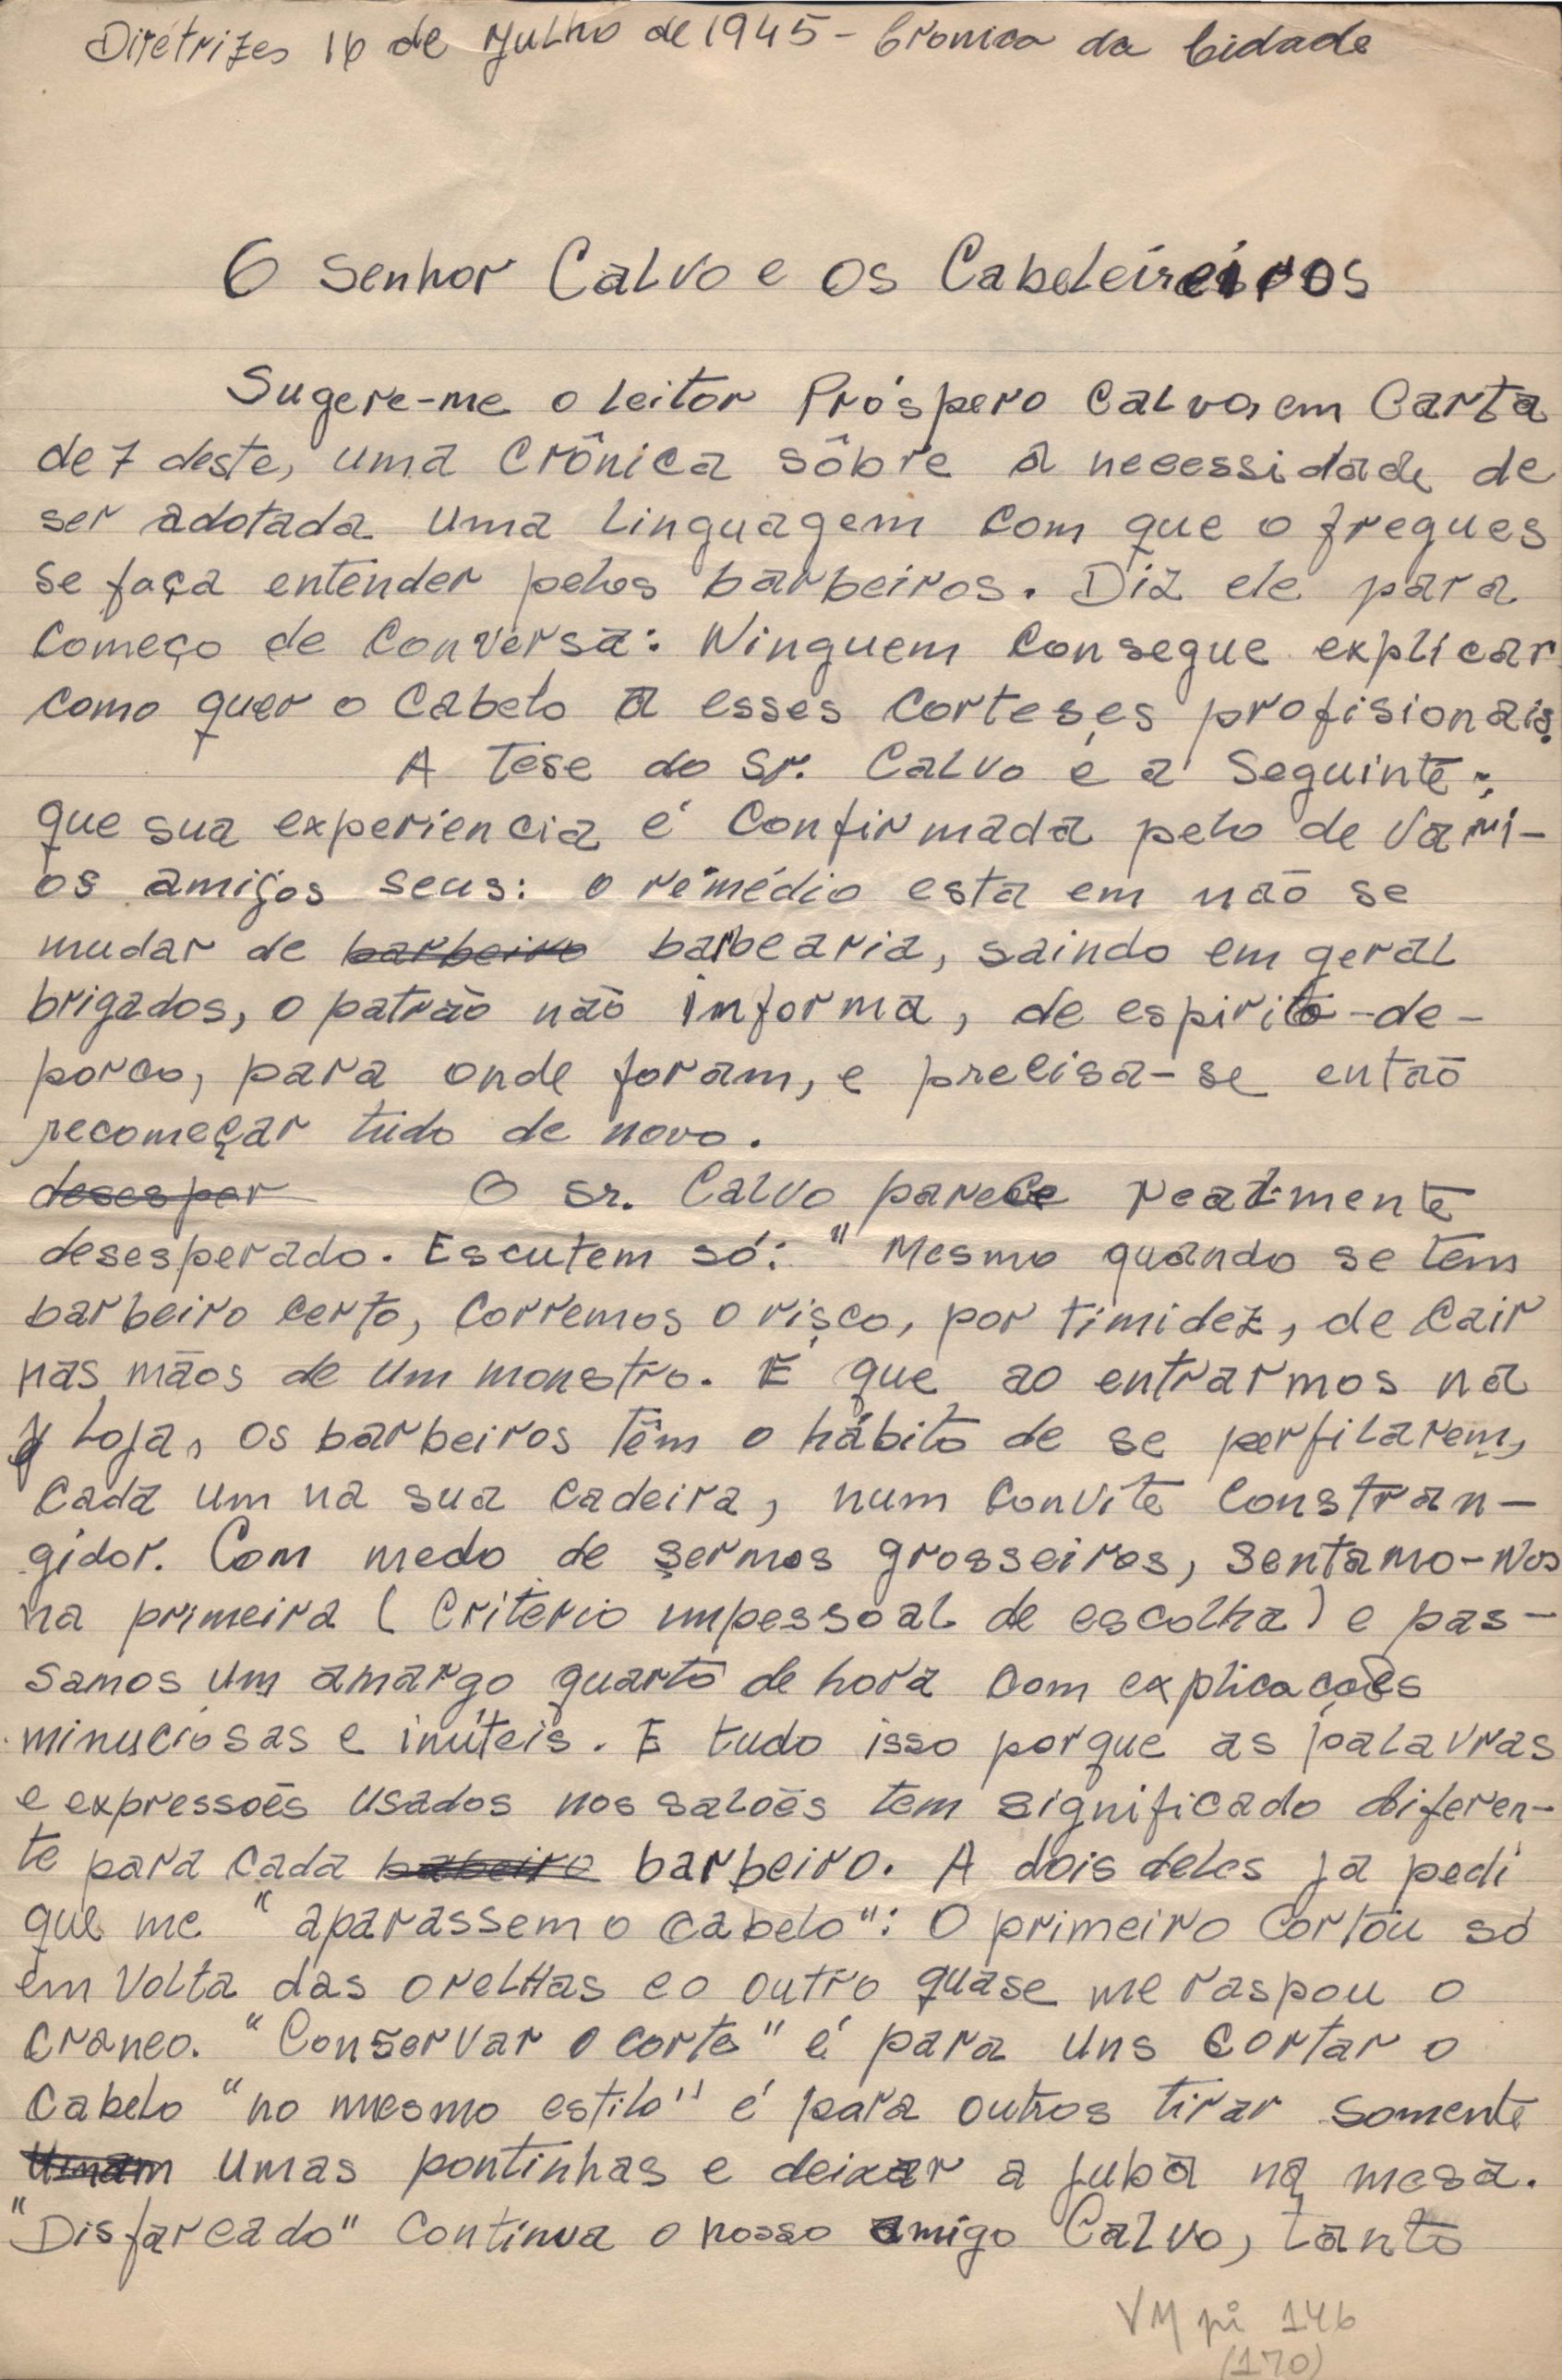 Dirétrizes 16 de Julho de 1945 - Cronica da Cidade
O Senhor Calvo e os Cabeleireiros
Sugere-me o leitor Próspero Calvo, em Carta
de 7 deste, uma crônica sôbre a necessidade de
ser adotada uma linguagem com que o fregues
se faça entender pelos barbeiros. Diz ele para
começo de conversa: Ninguem consegue explicar
como quer o cabelo a esses corteses profisionais.
A tese do Sr. Calvo é a seguinte;
que sua experiencia é confirmada pelo de vari-
os amigos seus: o remédio esta em não se
mudar de barbeiro barbearia, saindo em geral
brigados, o patrão não informa, de espirito-de-
porco, para onde foram, e precisa-se então
recomeçar tudo de novo.
desesper O sr. Calvo parece realmente
desesperado. Escutem só: "Mesmo quando se tem
barbeiro certo, corremos o risco, por timidez, de cair
nas mãos de um monstro. É que ao entrarmos na
loja, os barbeiros têm o hábito de se perfilarem,
cada um na sua cadeira, num convite constran-
gidor. Com medo de sermos grosseiros, sentamo-nos
na primeira (criterio impessoal de escolha) e pas-
samos um amargo quarto de hora com explicações
minuciosas e inúteis. E tudo isso porque as palavras
e expressoēs usados nos saloēs tem significado diferen-
te para cada babeiro barbeiro. A dois deles ja pedi
que me "aparassem o cabelo": O primeiro cortou só
em volta das orelhas e o outro quase me raspou o
craneo. "Conservar o corte" é para uns cortar o
cabelo "no mesmo estilo" é para outros tirar somente
umas pontinhas e deixar a juba na mesa.
"Disfarcado" continua o nosso amigo Calvo, tanto
VM pi 146
(170)